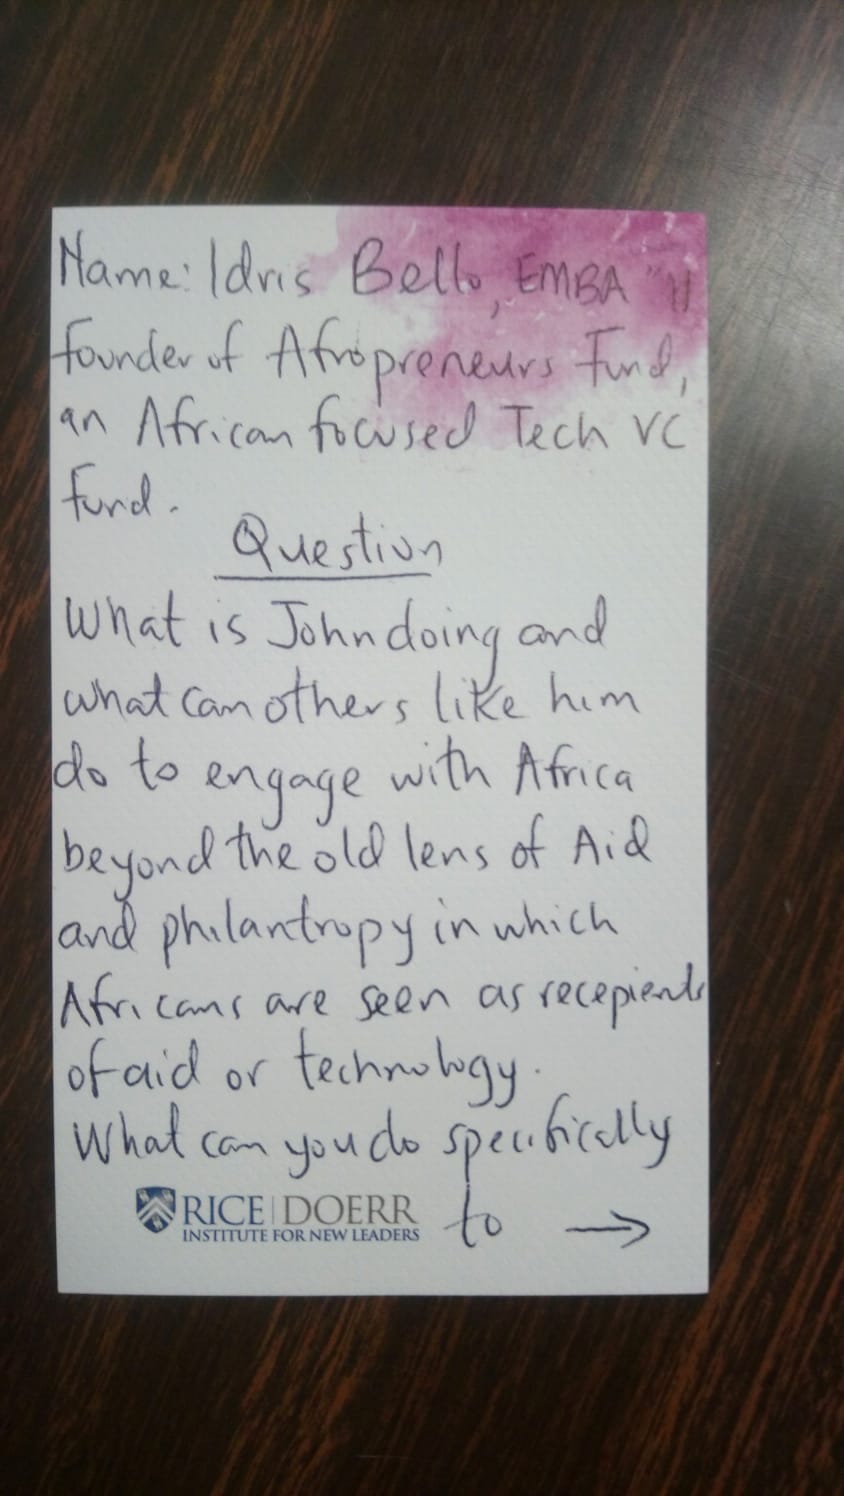 Name: Idris Bello, EMBA "11
founder of Afropreneurs Fund,
an African focused Tech VC
fund.
Question
What is John doing and
what can others like him
do to engage with Africa
beyond the old lens of Aid
and philantropy in which
Africans are seen as recepients
of aid or technology.
What can you do specifically
to →
RICE | DOERR
INSTITUTE FOR NEW LEADERS